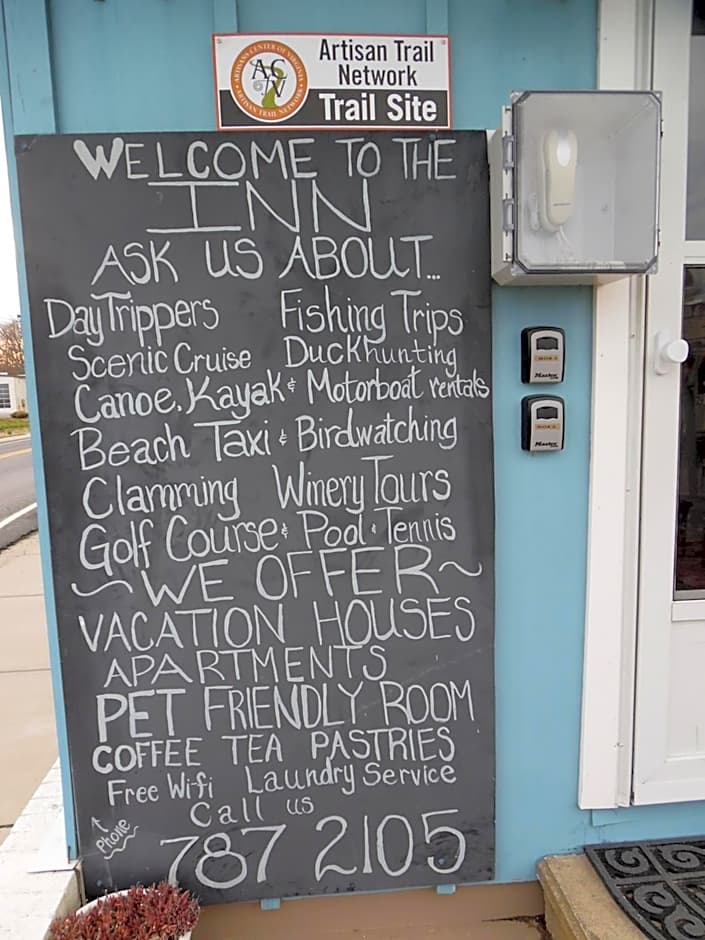 Artisan Trail
Network
Trail Site
ARTISANS CENTER OF VIRGINIA
ARTISAN TRAIL NETWORK
WELCOME TO THE
INN
ASK US ABOUT...
Day Trippers Fishing Trips
Scenic Cruise Duckhunting
Canoe, Kayak & Motorboat rentals
Beach Taxi & Birdwatching
Clamming Winery Tours
Golf Course & Pool & Tennis
~WE OFFER~
VACATION HOUSES
APARTMENTS
PET FRIENDLY ROOM
COFFEE TEA PASTRIES
Free Wifi Laundry Service
Call us
Phone
787 2105
Master
Master